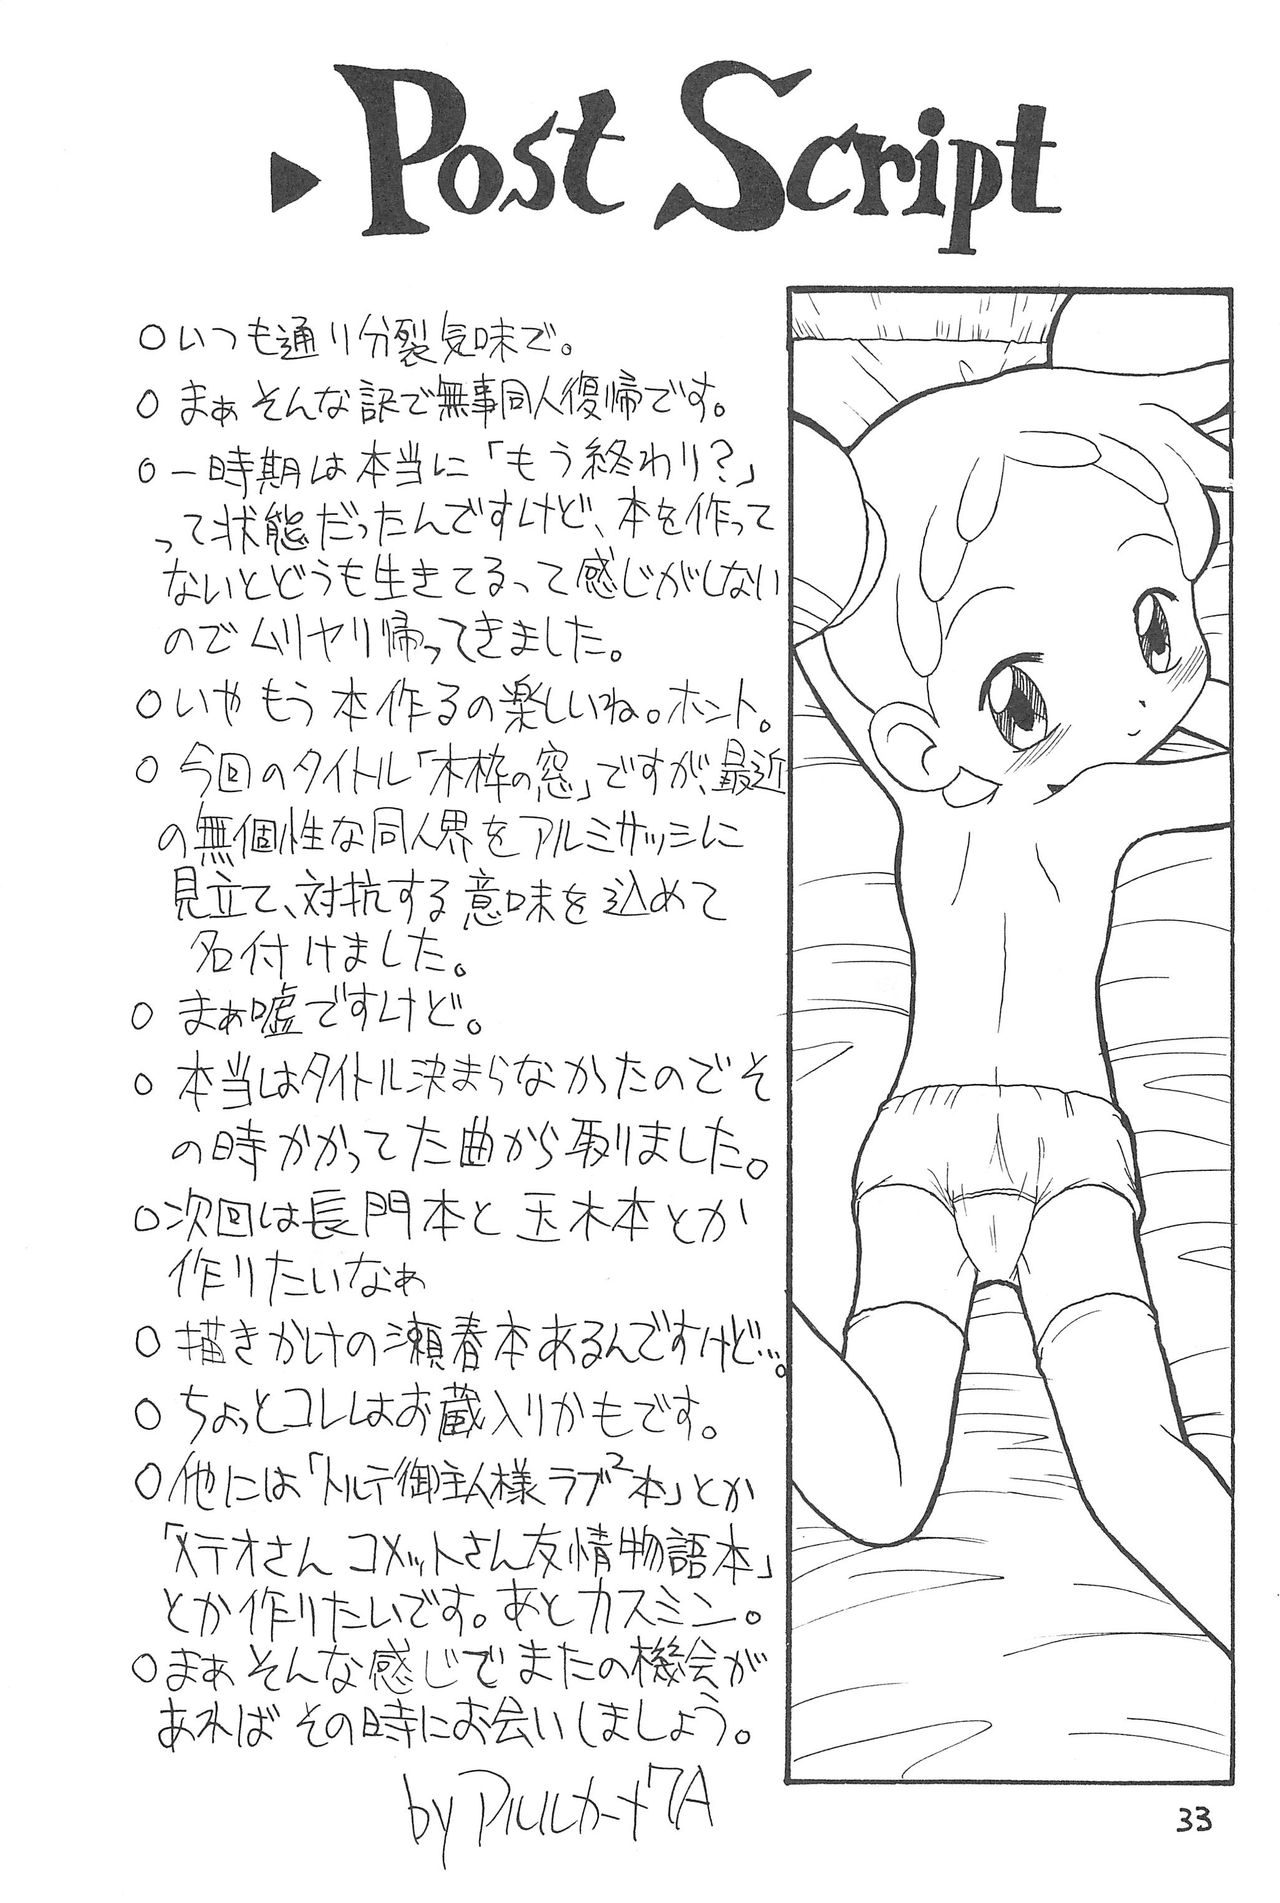 Post Script
○いつも通り分裂気味で。
○まぁそんな訳で無事同人復帰です。
○一時期は本当に「もう終わり？」
って状態だったんですけど、本を作って
ないとどうも生きてるって感じがしない
のでムリヤリ帰ってきました。
○いやもう本作るの楽しいね。ホント。
○今回のタイトル「木枠の窓」ですが、最近
の無個性な同人界をアルミサッシに
見立て、対抗する意味を込めて
名付けました。
○まぁ嘘ですけど。
○本当はタイトル決まらなかったのでそ
の時かかってた曲から取りました。
○次回は長門本と玉木本とか
作りたいなぁ
○描きかけの瀬春本あるんですけど…。
○ちょっとコレはお蔵入りかもです。
○他には「トルテ御主人様ラブ²本」とか
「メテオさんコメットさん友情物語本」
とか作りたいです。あとカスミン。
○まぁそんな感じでまたの機会が
あればその時にお会いしましょう。
by アルルカーナ7A
33